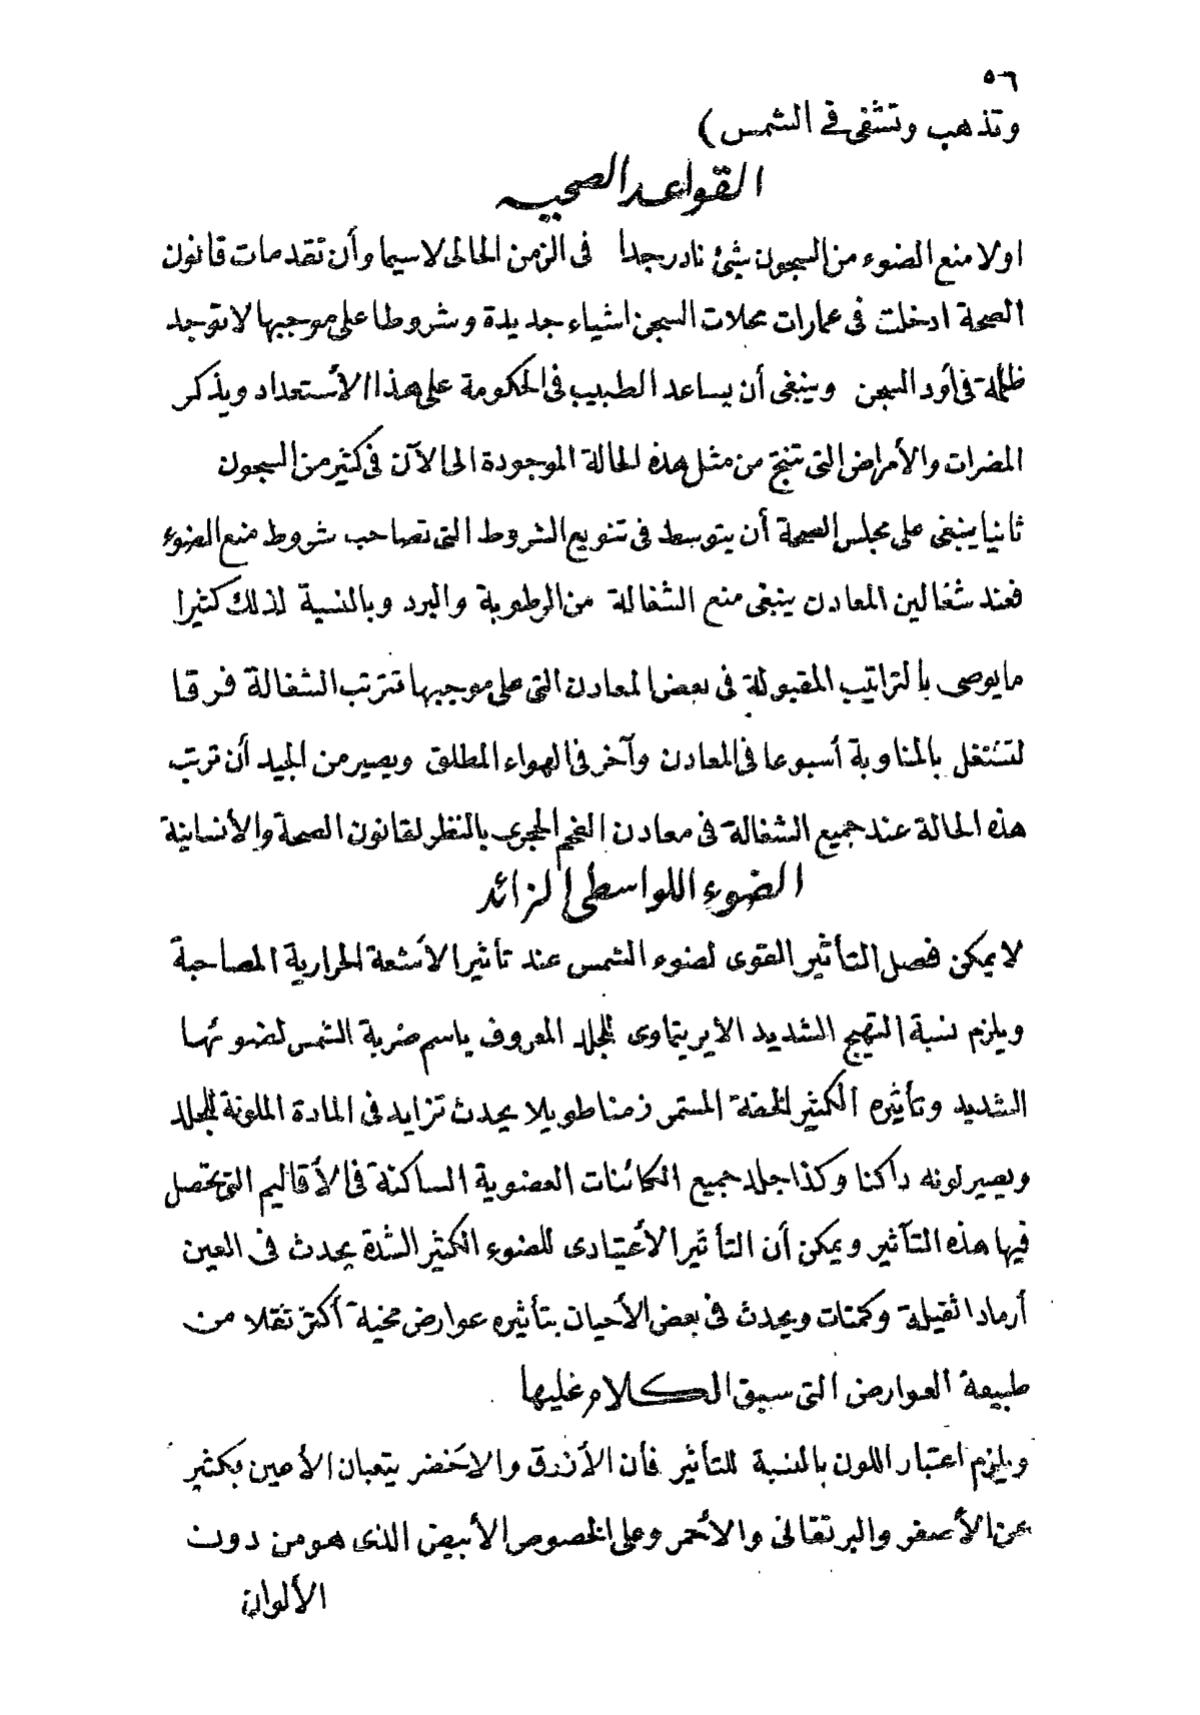 ٥٦
وتذهب وتشفى فى الشمس)
القواعد الصحيه
اولا منع الضوء من السجون شئ نادر جدا فى الزمن الحالى لاسيما وأن تقدمات قانون
الصحة ادخلت فى عمارات محلات السجن اشياء جديدة وشروطا على موجبها لا توجد
ظلمة فى أود السجن وينبغى أن يساعد الطبيب فى الحكومة على هذا الأستعداد ويذكر
المضرات والأمراض التى تنتج من مثل هذه الحالة الموجودة الى الآن فى كثير من السجون
ثانيا ينبغى على مجلس الصحة أن يتوسط فى تنويع الشروط التى تصاحب شروط منع الضوء
فعند شغالين المعادن ينبغى منع الشغالة من الرطوبة والبرد وبالنسبة لذلك كثيرا
ما يوصى بالتراتيب المقبولة فى بعض المعادن التى على موجبها تترتب الشغالة فرقا
لتشتغل بالمناوبة أسبوعا فى المعادن وآخر فى الهواء المطلق ويصير من الجيد أن ترتب
هذه الحالة عند جميع الشغالة فى معادن الفحم الحجرى بالنظر لقانون الصحة والأنسانية
الضوء اللواسطى الزائد
لا يمكن فصل التأثير القوى لضوء الشمس عند تاثير الأشعة الحرارية المصاحبة
ويلزم نسبة التهيج الشديد الايريتماوى للجلد المعروف باسم ضربة الشمس لضوئها
الشديد وتأثيره الكثير الخفة المستمر زمنا طويلا يحدث تزايد فى المادة الملونة للجلد
ويصير لونه داكنا وكذا جلد جميع الكائنات العضوية الساكنة فى الأقاليم التى تحصل
فيها هذه التآثير ويمكن أن التأثير الأعتيادى للضوء الكثير الشدة يحدث فى العين
أرمادا ثقيلة وكمنات ويحدث فى بعض الأحيان بتأثيره عوارض مخية أكثر ثقلا من
طبيعة العوارض التى سبق الكلام غليها
ويلزم اعتبار اللون بالنسبة للتأثير فأن الأزرق والاخضر يتعبان الأعين بكثير
عن الأصفر والبرتقانى والأحمر وعلى الخصوص الأبيض الذى هو من دون
الألوان